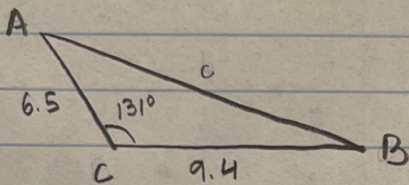 A
c
6.5
131°
C
9.4
B